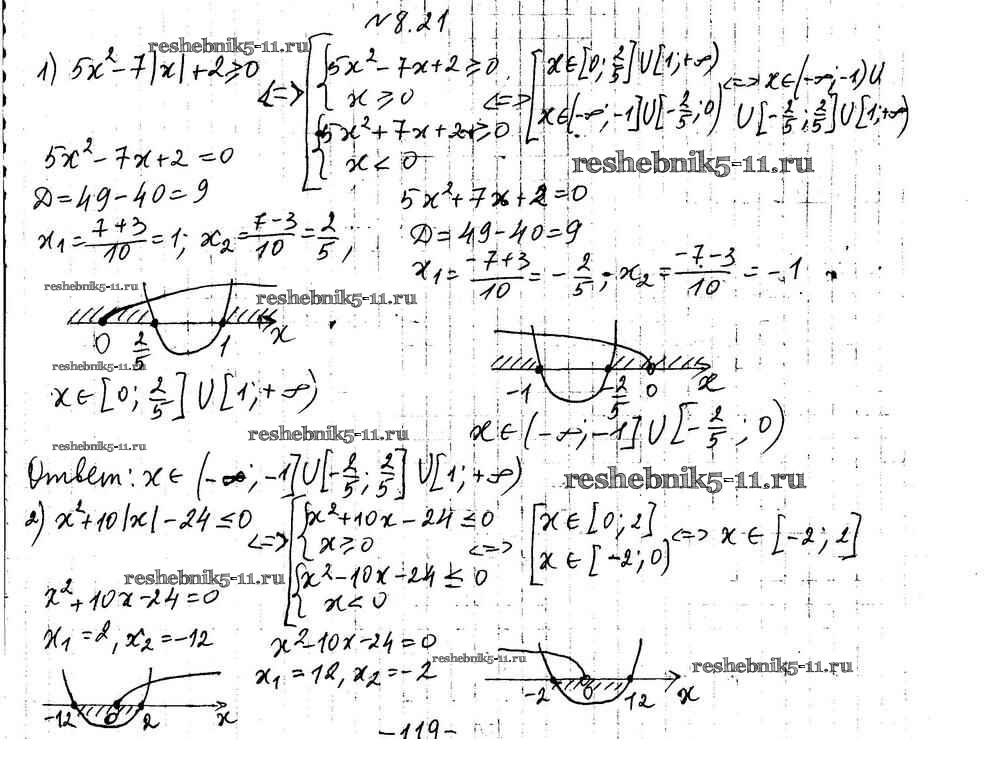 №8.21
reshebnik5-11.ru
1) 5x²-7|x|+2≥0 <=> [ { 5x²-7x+2≥0 x≥0 { 5x²+7x+2≥0 x<0 <=> [ x∈[0;2/5]∪[1;+∞) x∈(-∞;-1]∪[-2/5;0) <=> x∈(-∞;-1)∪ ∪[-2/5;2/5]∪[1;+∞)
reshebnik5-11.ru
5x²-7x+2=0
Д=49-40=9
x₁=7+3/10=1; x₂=7-3/10=2/5;
5x²+7x+2=0
Д=49-40=9
x₁=-7+3/10=-2/5; x₂=-7-3/10=-1
reshebnik5-11.ru
reshebnik5-11.ru
0 2/5 1 x
-1 -2/5 0 x
reshebnik5-11.ru
x∈[0;2/5]∪[1;+∞)
x∈(-∞;-1]∪[-2/5;0)
reshebnik5-11.ru
reshebnik5-11.ru
Ответ: x∈(-∞;-1]∪[-2/5;2/5]∪[1;+∞)
reshebnik5-11.ru
2) x²+10|x|-24≤0 <=> [ { x²+10x-24≤0 x≥0 { x²-10x-24≤0 x<0 <=> [ x∈[0;2] x∈[-2;0) <=> x∈[-2;2]
reshebnik5-11.ru
x²+10x-24=0
x₁=2, x₂=-12
x²-10x-24=0
x₁=12, x₂=-2
reshebnik5-11.ru
reshebnik5-11.ru
-12 0 2 x
-2 0 12 x
-119-